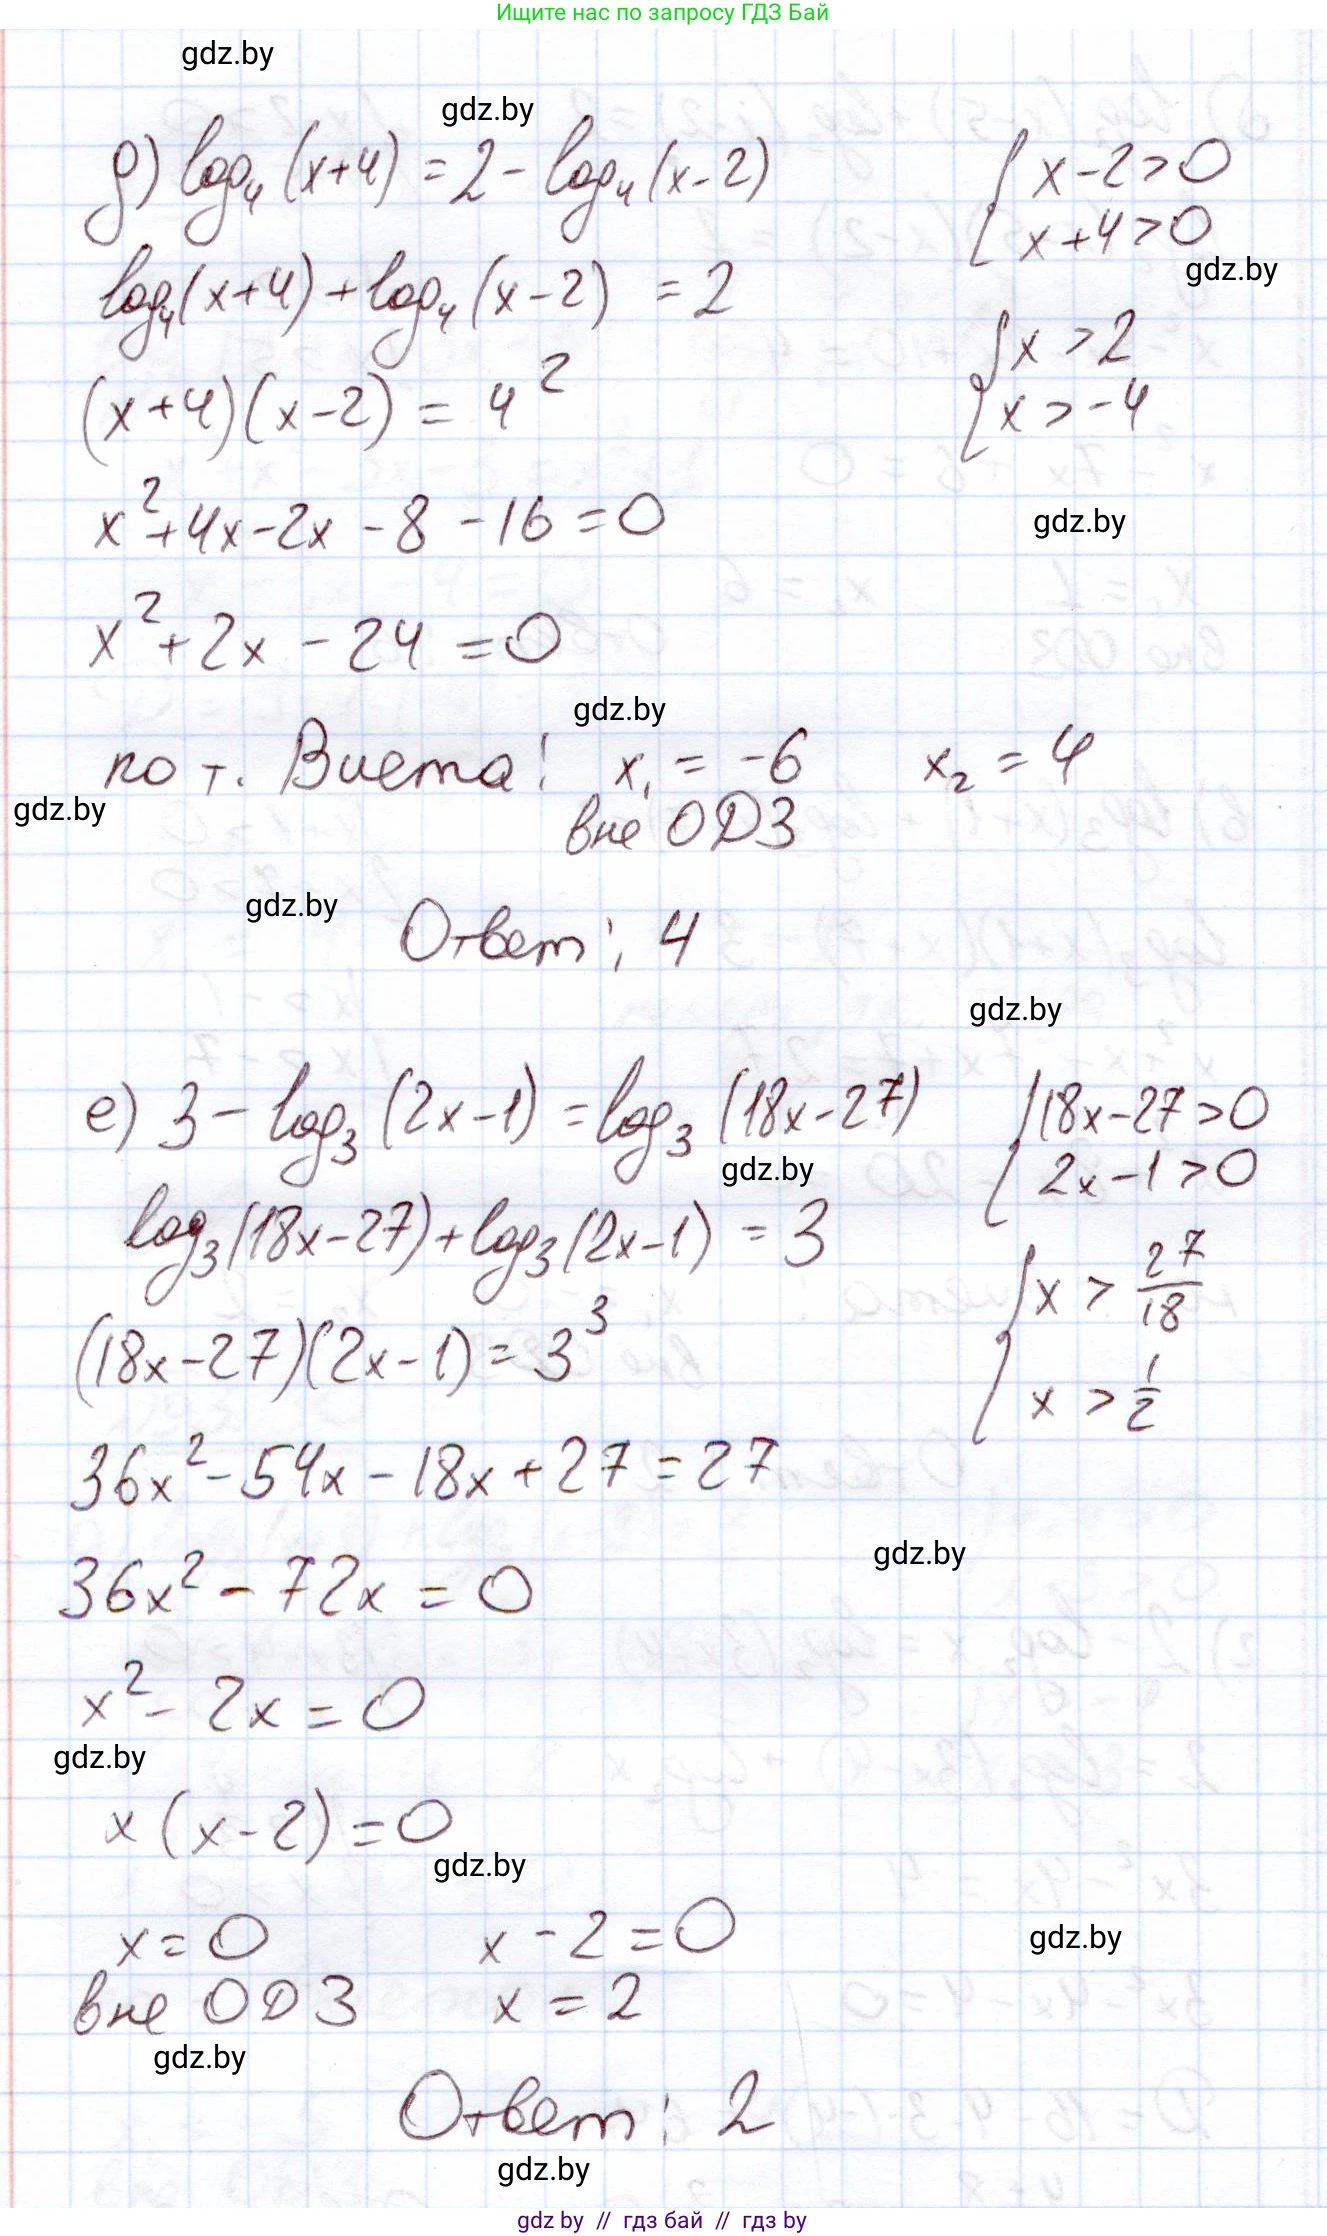 Ищите нас по запросу ГДЗ Бай
gdz.by
gdz.by
д) log₄(x+4) = 2 - log₄(x-2)
{ x-2>0
x+4>0
gdz.by
log₄(x+4) + log₄(x-2) = 2
{ x > 2
x > -4
(x+4)(x-2) = 4²
x² + 4x - 2x - 8 - 16 = 0
gdz.by
x² + 2x - 24 = 0
gdz.by
по т. Виета: x₁ = -6 x₂ = 4
gdz.by
вне ОДЗ
gdz.by
Ответ: 4
gdz.by
е) 3 - log₃(2x-1) = log₃(18x-27)
{ 18x-27 > 0
2x-1 > 0
gdz.by
log₃(18x-27) + log₃(2x-1) = 3
{ x > 27/18
x > 1/2
(18x-27)(2x-1) = 3³
36x² - 54x - 18x + 27 = 27
gdz.by
36x² - 72x = 0
x² - 2x = 0
gdz.by
x(x-2) = 0
gdz.by
x = 0 x - 2 = 0
gdz.by
вне ОДЗ x = 2
gdz.by
Ответ: 2
gdz.by
gdz by // гдз бай // гдз by